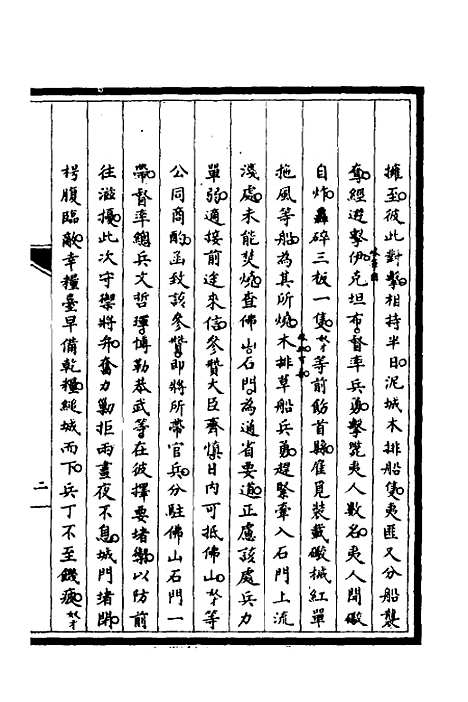 擁至彼此對擊相持半日泥城木排船隻夷匪又分船襲
奪經遊擊伊克坦布督率兵勇擊斃夷人數名夷人開礮
自炸轟碎三板一隻奴才等前飭首縣雇覓裝載礮械紅單
拖風等船為其所燒木排草船兵勇趕緊牽入石門上流
淺處未能焚燒查佛山石門為通省要道正慮該處兵力
單弱適接前途來信參贊大臣齊慎日內可抵佛山奴才等
公同商酌函致該參贊即將所帶官兵分駐佛山石門一
帶督率總兵文哲琿博勒恭武等在彼擇要堵禦以防前
往滋擾此次守禦將弁奮力勦拒雨晝夜不息城門堵閉
枵腹臨敵幸糧臺早備乾糧縋城而下兵丁不至饑疲奴才
二